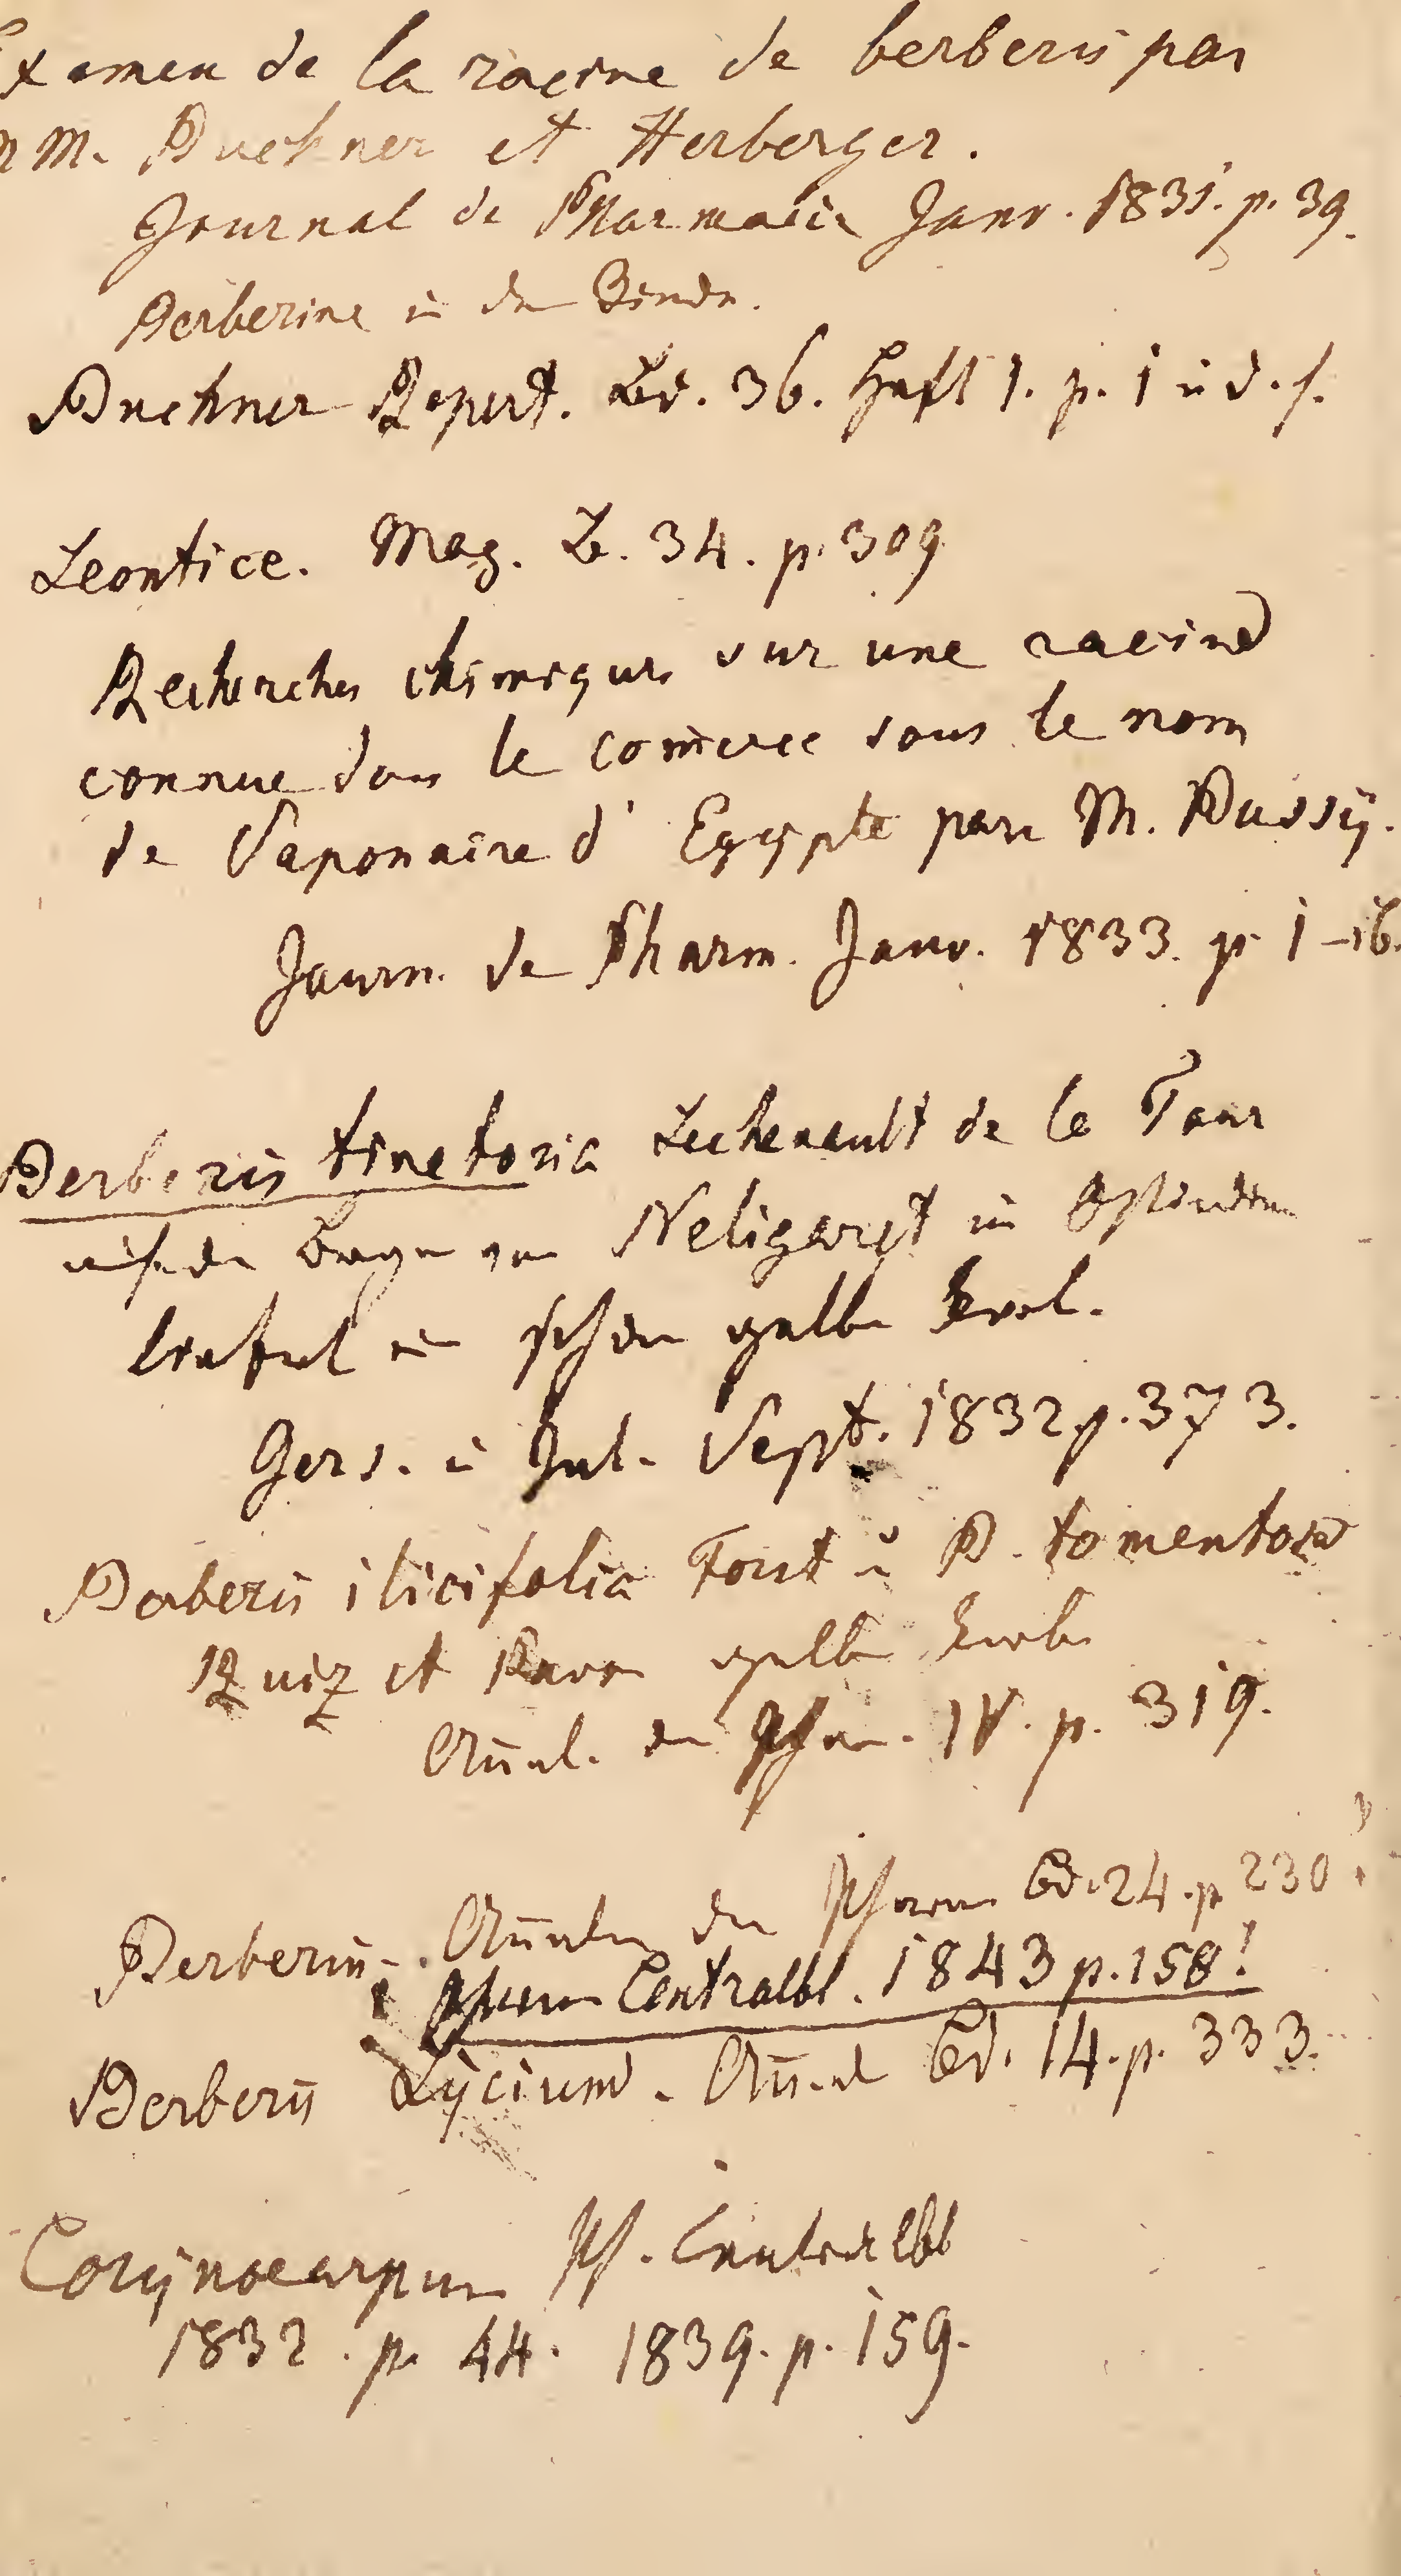 Examen de la racine de berberis par
M. Buchner et Herberger.
Journal de Pharmacie Janv. 1831. p. 39.
Berberine in der Rinde.
Buchner Repert. Bd. 36. Heft 1. p. 1 u d. f.
Leontice. Mag. B. 34. p. 309
Recherches chimiques sur une racine
connue dans le com̄erce sous le nom
de Saponaire d' Egypte par M. Bussÿ.
Journ. de Pharm. Janv. 1833. p. 1–16.
Berberis tinctoria Lechenault de la Tour
auf den Bergen von Neligargt in Ostindien
liefert ein schön gelbes
Geis. u Jul. Sept. 1832 p. 373.
Berberis ilicifolia Forst u B. tomentosa
Ruiz et Pavon gelbe Farbe
An̄al. der Phar. IV. p. 319.
Berberin. An̄alen der Pharm Bd. 24. p. 230
Pharm Centralbl. 1843 p. 158!
Berberis Lÿcium. An̄al Bd. 14. p. 333.
Corÿnocarpus Ph. Centralbl
1832. p. 44. 1839. p. 159.